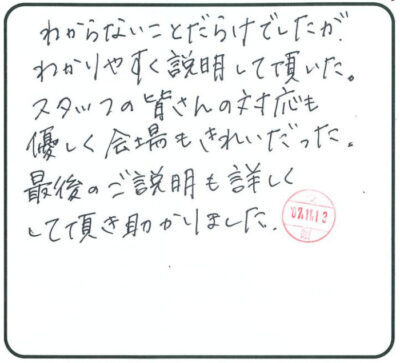 わからないことだらけでしたが、
わかりやすく説明して頂いた。
スタッフの皆さんの対応も
優しく会場もきれいだった。
最後のご説明も詳しく
して頂き助かりました。
07.11.13